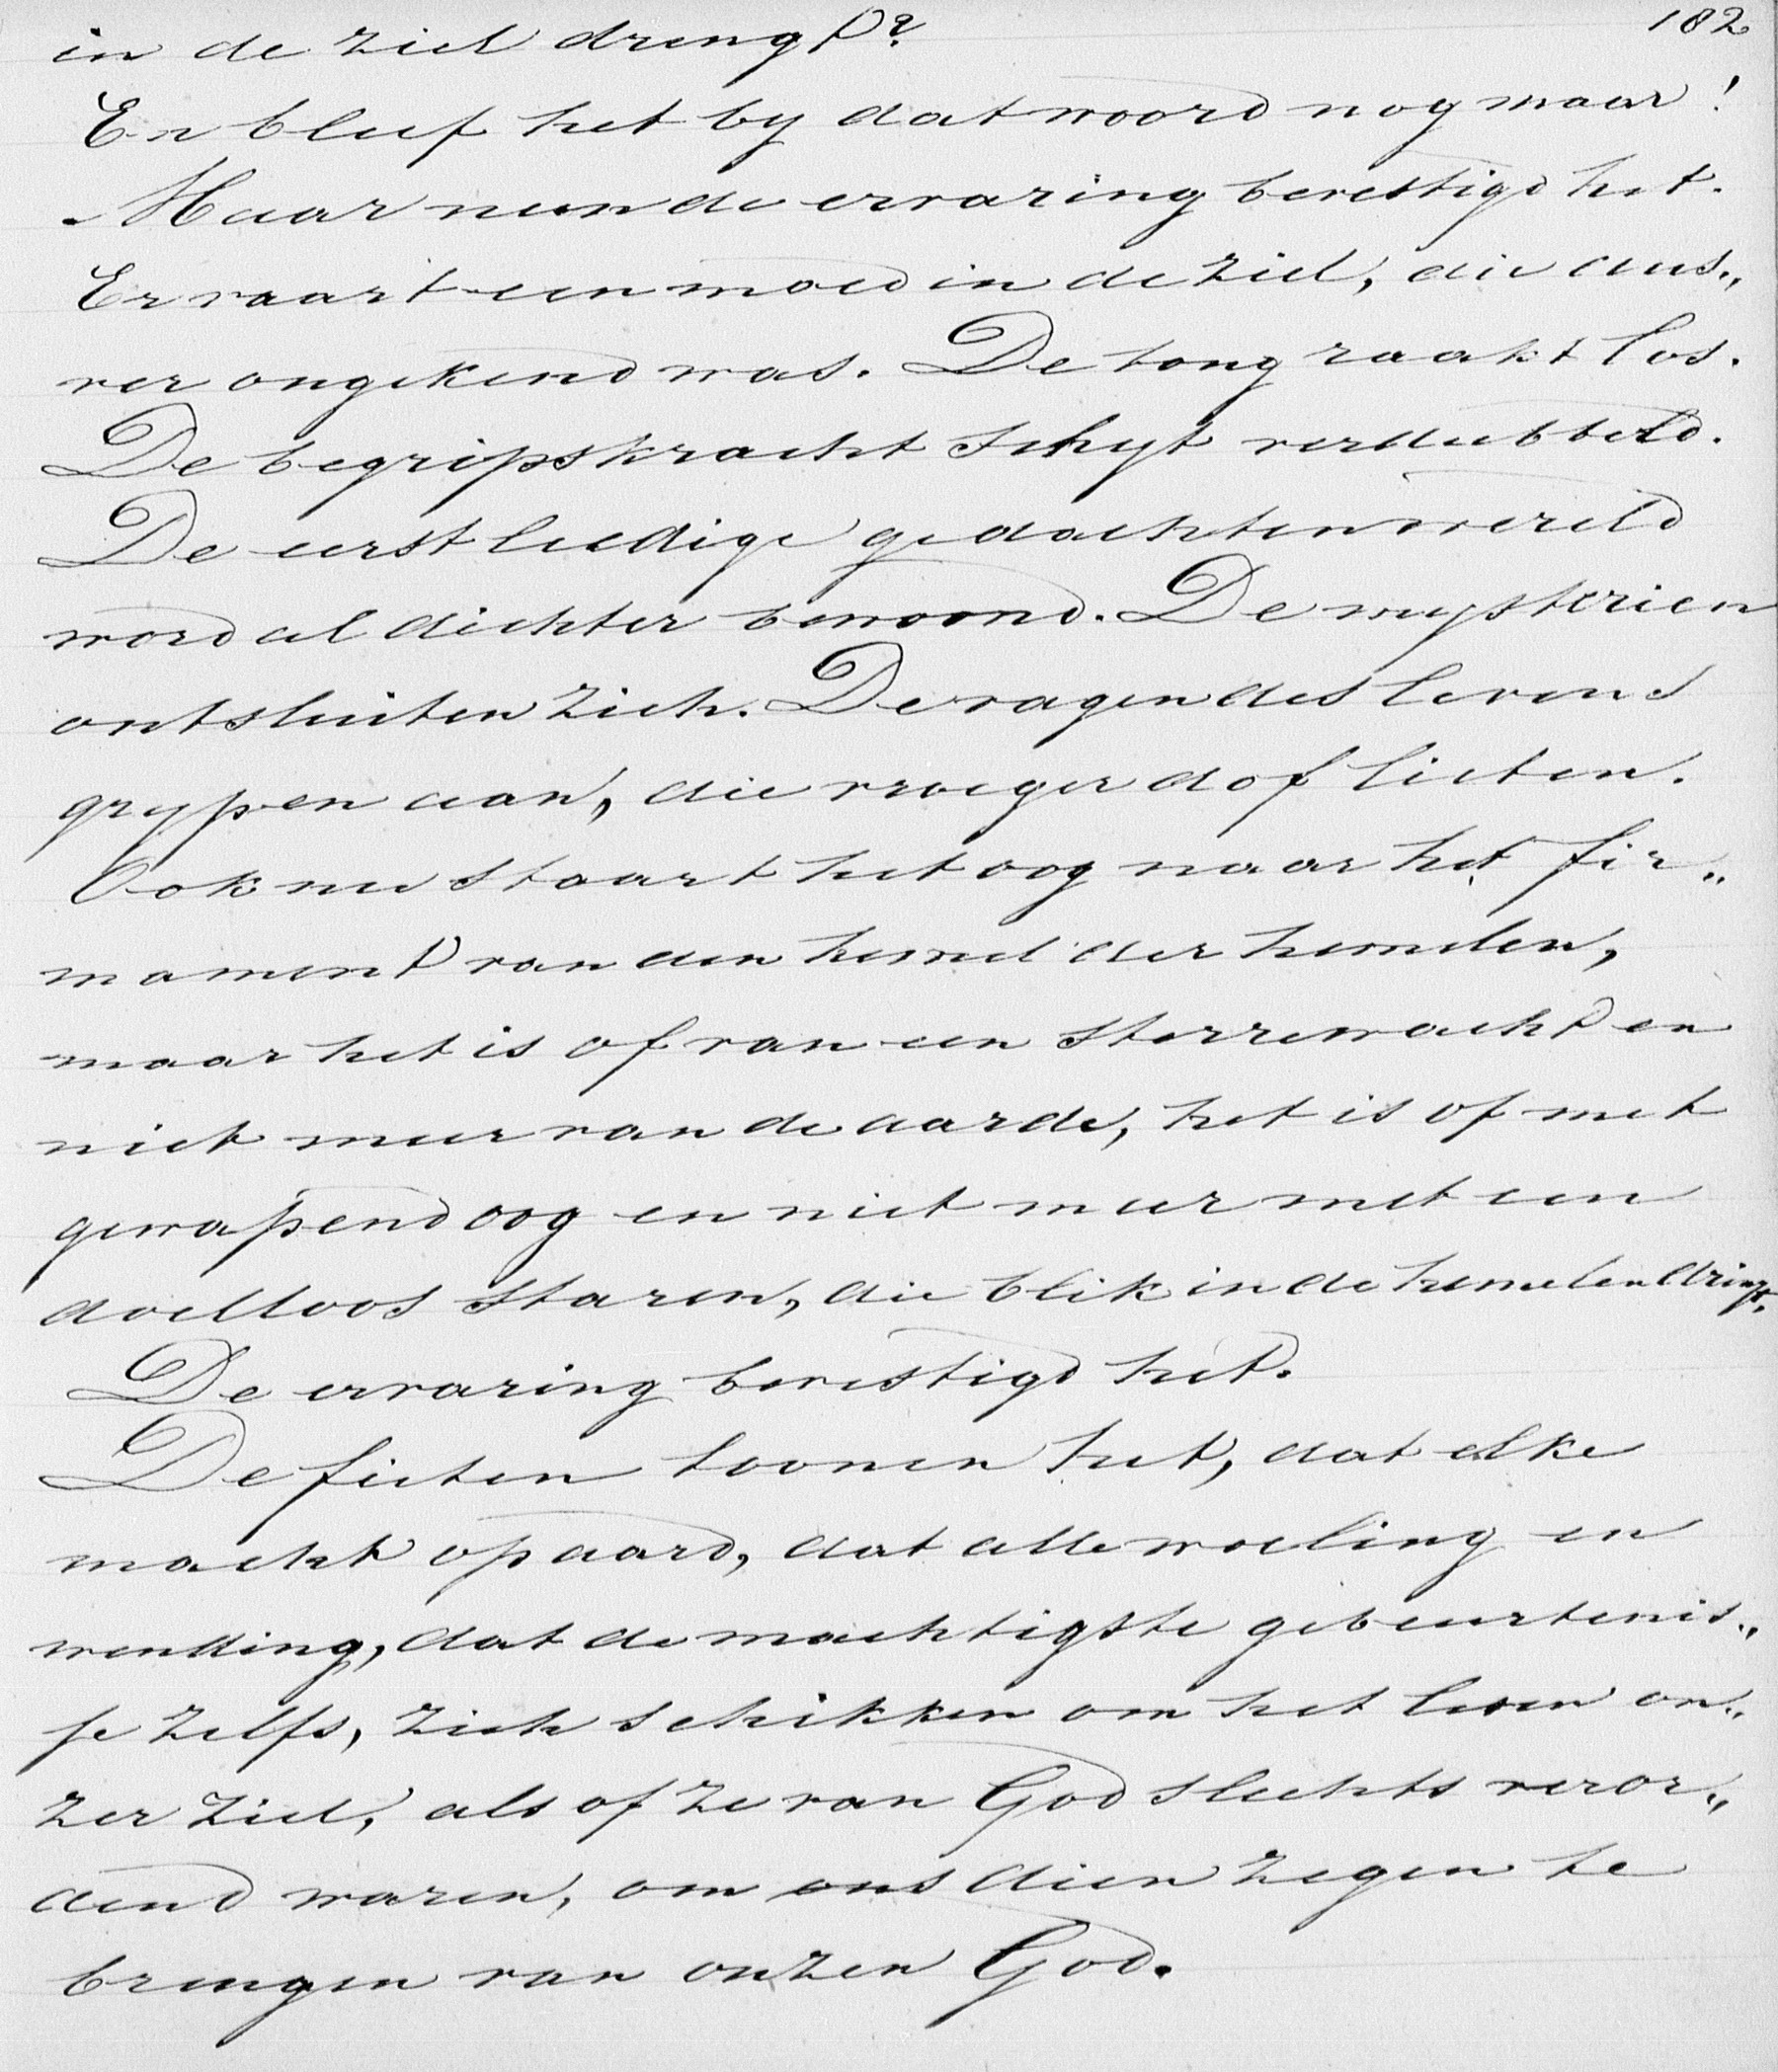 182
in de ziel drengt?
En bleef het by dat woord nog maar!
Maar neen de ervaring bevestigd het.
Er vaart een moed in de ziel, die dus„
ver ongekend was. De tong raakt los.
De begripskracht schynt verdubbeld.
De eerst leedige gedachtenwereld
word al dichter bewoond. De mysterien
ontsluiten zich. De vragen des levens
grypen aan, die vroeger dof lieten.
Ook nu staart het oog naar het fir„
mament van den hemel der hemelen,
maar het is of van een sterrewacht en
niet meer van de aarde, het is of met
gewapend oog en niet meer met een
doelloos staren, die blik in de hemelen dringt.
De ervaring bevestigd het.
De feiten toonen het, dat elke
macht op aard, dat alle woeling en
wending, dat de machtigste gebeurtenis„
se zelfs, zich schikken om het leven on„
zer ziel, als of ze van God slechts veror„
dend waren, om ons dien zegen te
brengen van onzen God.